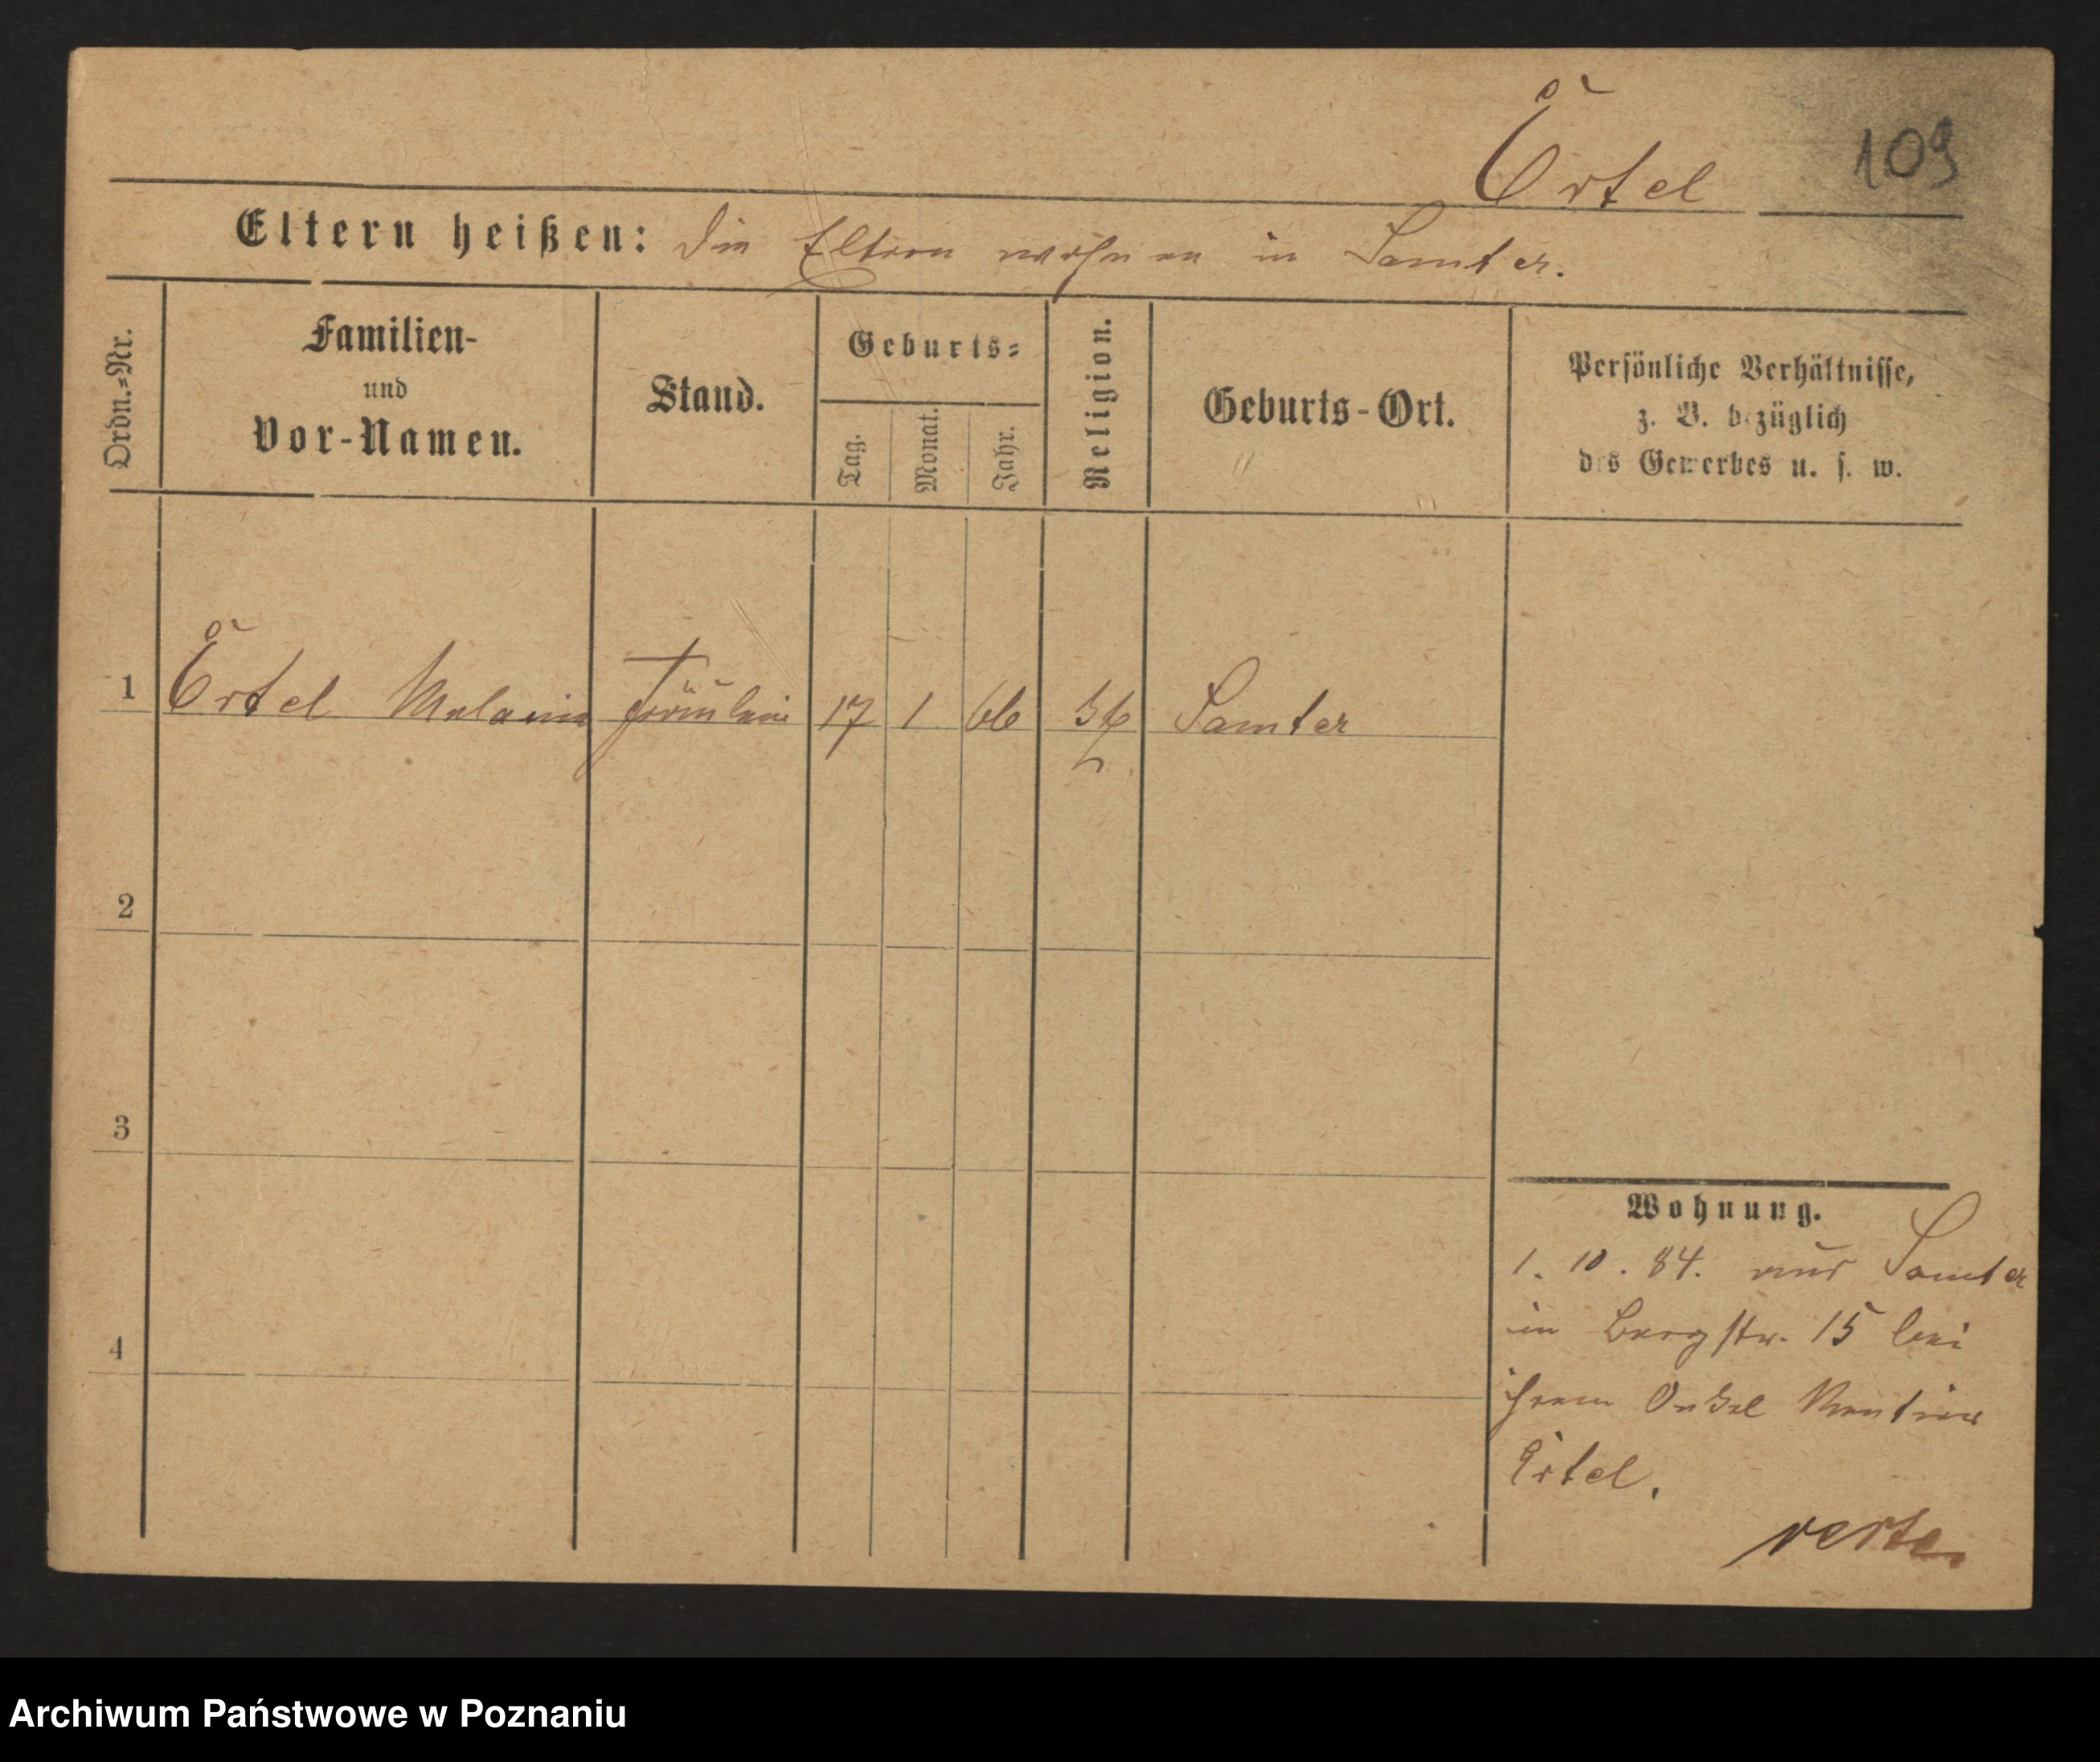 Örtel
109
Eltern heißen: Die Eltern wohnen in Samter.
Ordn.=Nr.
Familien-
und
Vor-Namen.
Stand.
Geburts=
Tag.
Monat.
Jahr.
Religion.
Geburts-Ort.
Persönliche Verhältnisse,
z. B. bezüglich
des Gewerbes u. s. w.
1 Örtel Melanie Fräulein 17 1 66 Samter
2
3
4
Wohnung.
1. 10. 84. aus Samter
in Bergstr. 15 bei
ihrem Onkel Rentier
verte
Archiwum Państwowe w Poznaniu